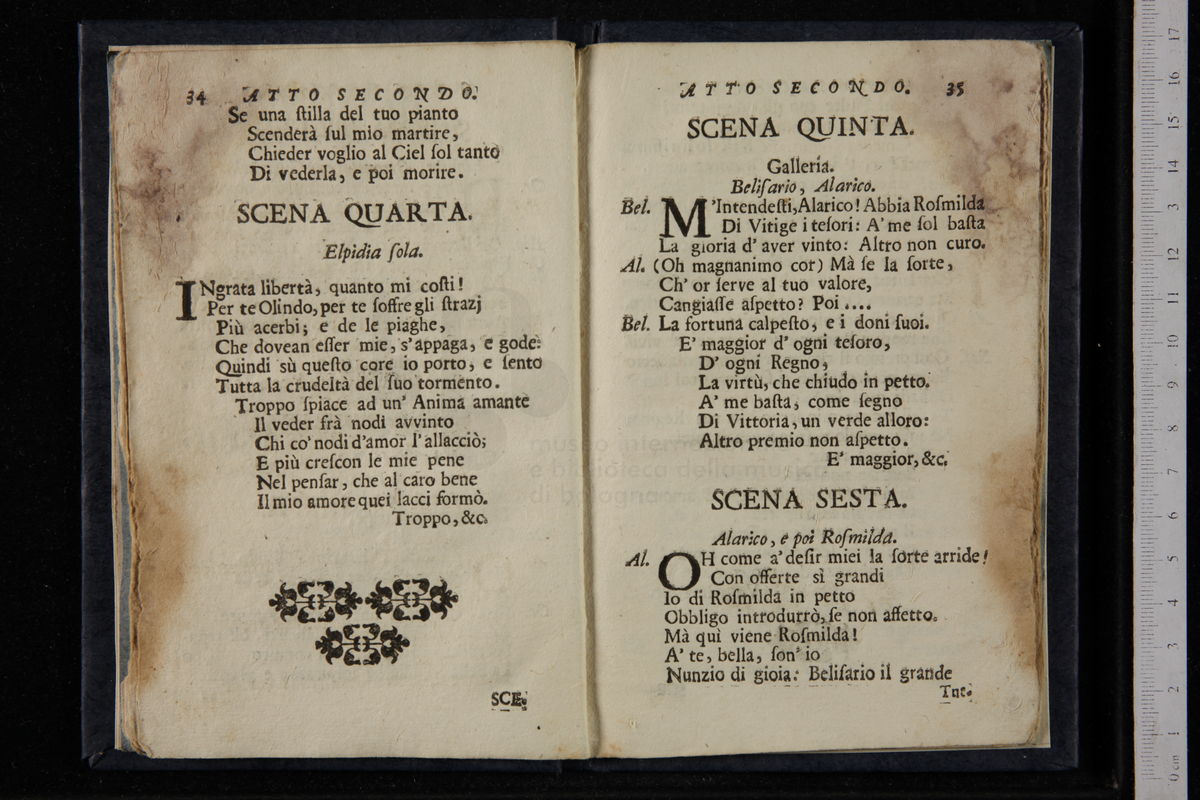 34 ATTO SECONDO.
Se una ſtilla del tuo pianto
Scenderà ſul mio martire,
Chieder voglio al Ciel ſol tanto
Di vederla, e poi morire.
SCENA QUARTA.
Elpidia ſola.
INgrata libertà, quanto mi coſti!
Per te Olindo, per te ſoffre gli ſtrazj
Più acerbi; e de le piaghe,
Che dovean eſſer mie, s'appaga, e gode:
Quindi sù queſto core io porto, e ſento
Tutta la crudeltà del ſuo tormento.
Troppo ſpiace ad un' Anima amante
Il veder frà nodi avvinto
Chi co' nodi d'amor l'allacciò;
E più creſcon le mie pene
Nel penſar, che al caro bene
Il mio amore quei lacci formò.
Troppo, &c.
SCE.
ATTO SECONDO. 35
SCENA QUINTA.
Galleria.
Beliſario, Alarico.
Bel. M'Intendeſti, Alarico! Abbia Roſmilda
Di Vitige i teſori: A' me ſol baſta
La gloria d' aver vinto: Altro non curo.
Al. (Oh magnanimo cor) Mà ſe la ſorte,
Ch' or ſerve al tuo valore,
Cangiaſſe aſpetto? Poi ....
Bel. La fortuna calpeſto, e i doni ſuoi.
E' maggior d' ogni teſoro,
D' ogni Regno,
La virtù, che chiudo in petto.
A' me baſta, come ſegno
Di Vittoria, un verde alloro:
Altro premio non aſpetto.
E' maggior, &c.
SCENA SESTA.
Alarico, e poi Roſmilda.
Al. OH come a' deſir miei la ſorte arride!
Con offerte sì grandi
Io di Roſmilda in petto
Obbligo introdurrò, ſe non affetto.
Mà quì viene Roſmilda!
A' te, bella, ſon' io
Nunzio di gioia: Beliſario il grande
Tut.
museo internazionale
e biblioteca della musica
di bologna
0 cm 1 2 3 4 5 6 7 8 9 10 11 12 13 14 15 16 17